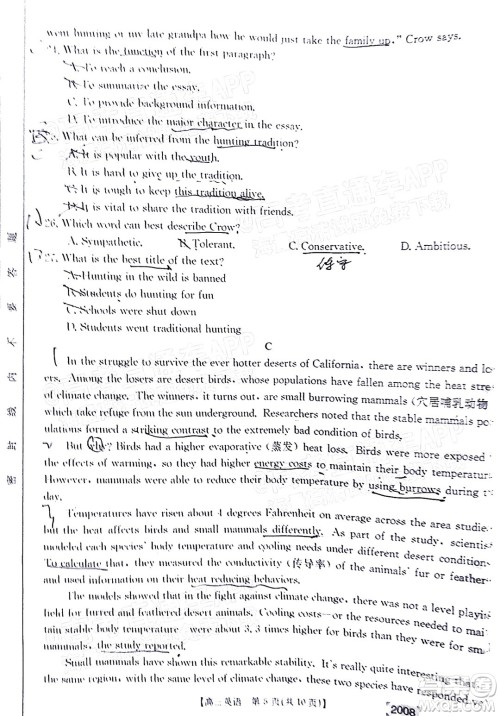 went hunting or my late grandpa how he would just take the family up," Crow says.
24. What is the function of the first paragraph?
A. To reach a conclusion.
B. To summarize the essay.
C. To provide background information.
D. To introduce the major character in the essay.
25. What can be inferred from the hunting tradition?
A. It is popular with the youth.
B. It is hard to give up the tradition.
C. It is tough to keep this tradition alive.
D. It is vital to share the tradition with friends.
26. Which word can best describe Crow?
A. Sympathetic. B. Tolerant. C. Conservative. D. Ambitious.
保守
27. What is the best title of the text?
A. Hunting in the wild is banned
B. Students do hunting for fun
C. Schools were shut down
D. Students went traditional hunting
C
In the struggle to survive the ever hotter deserts of California, there are winners and lo
ers. Among the losers are desert birds, whose populations have fallen among the heat stre
of climate change. The winners, it turns out, are small burrowing mammals (穴居哺乳动物
which take refuge from the sun underground. Researchers noted that the stable mammals po
ulations formed a striking contrast to the extremely bad condition of birds.
But why? Birds had a higher evaporative (蒸发) heat loss. Birds were more exposed
the effects of warming, so they had higher energy costs to maintain their body temperatur
However, mammals were able to reduce their body temperature by using burrows during t
day.
Temperatures have risen about 4 degrees Fahrenheit on average across the area studie
but the heat affects birds and small mammals differently. As part of the study, scientis
modeled each species' body temperature and cooling needs under different desert condition
To calculate that, they measured the conductivity (传导率) of the animals' fur or feather
and used information on their heat reducing behaviors.
The models showed that in the fight against climate change, there was not a level playin
field for furred and feathered desert animals. Cooling costs—or the resources needed to mai
tain stable body temperature—were about 3.3 times higher for birds than they were for sma
mammals, the study reported.
Small mammals have shown this remarkable stability. It's truly quite interesting that in
the same region, with the same level of climate change, these two species have responded ve
【高三英语 第5页(共10页)】
2008
密封线内不要答题